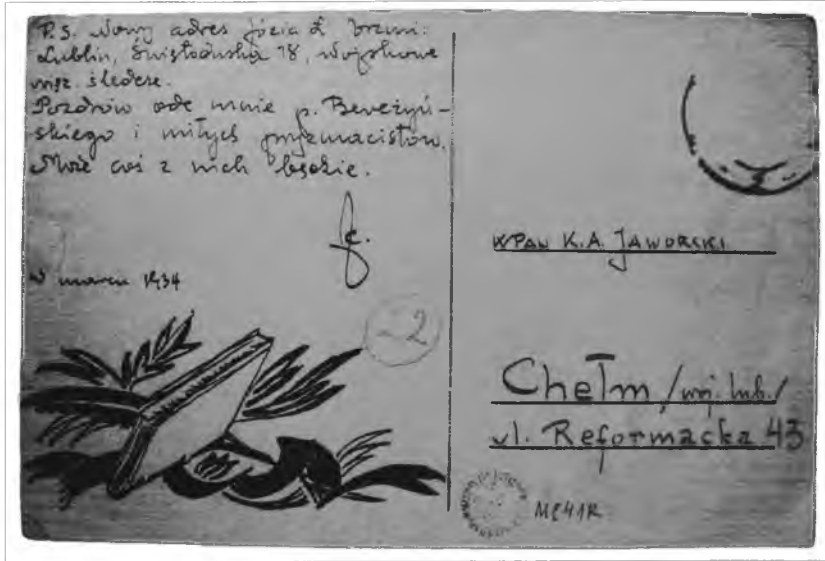 P.S. Nowy adres Józia Ł. brzmi:
Lublin, Świętoduska 18, Wojskowe
więz. śledcze.
Pozdrów ode mnie p.
skiego i miłych pryzmacistów.
Może coś z nich będzie.
W marcu 1934
2
WPAN K.A. JAWORSKI
Chełm /woj. lub./
ul. Reformacka 43